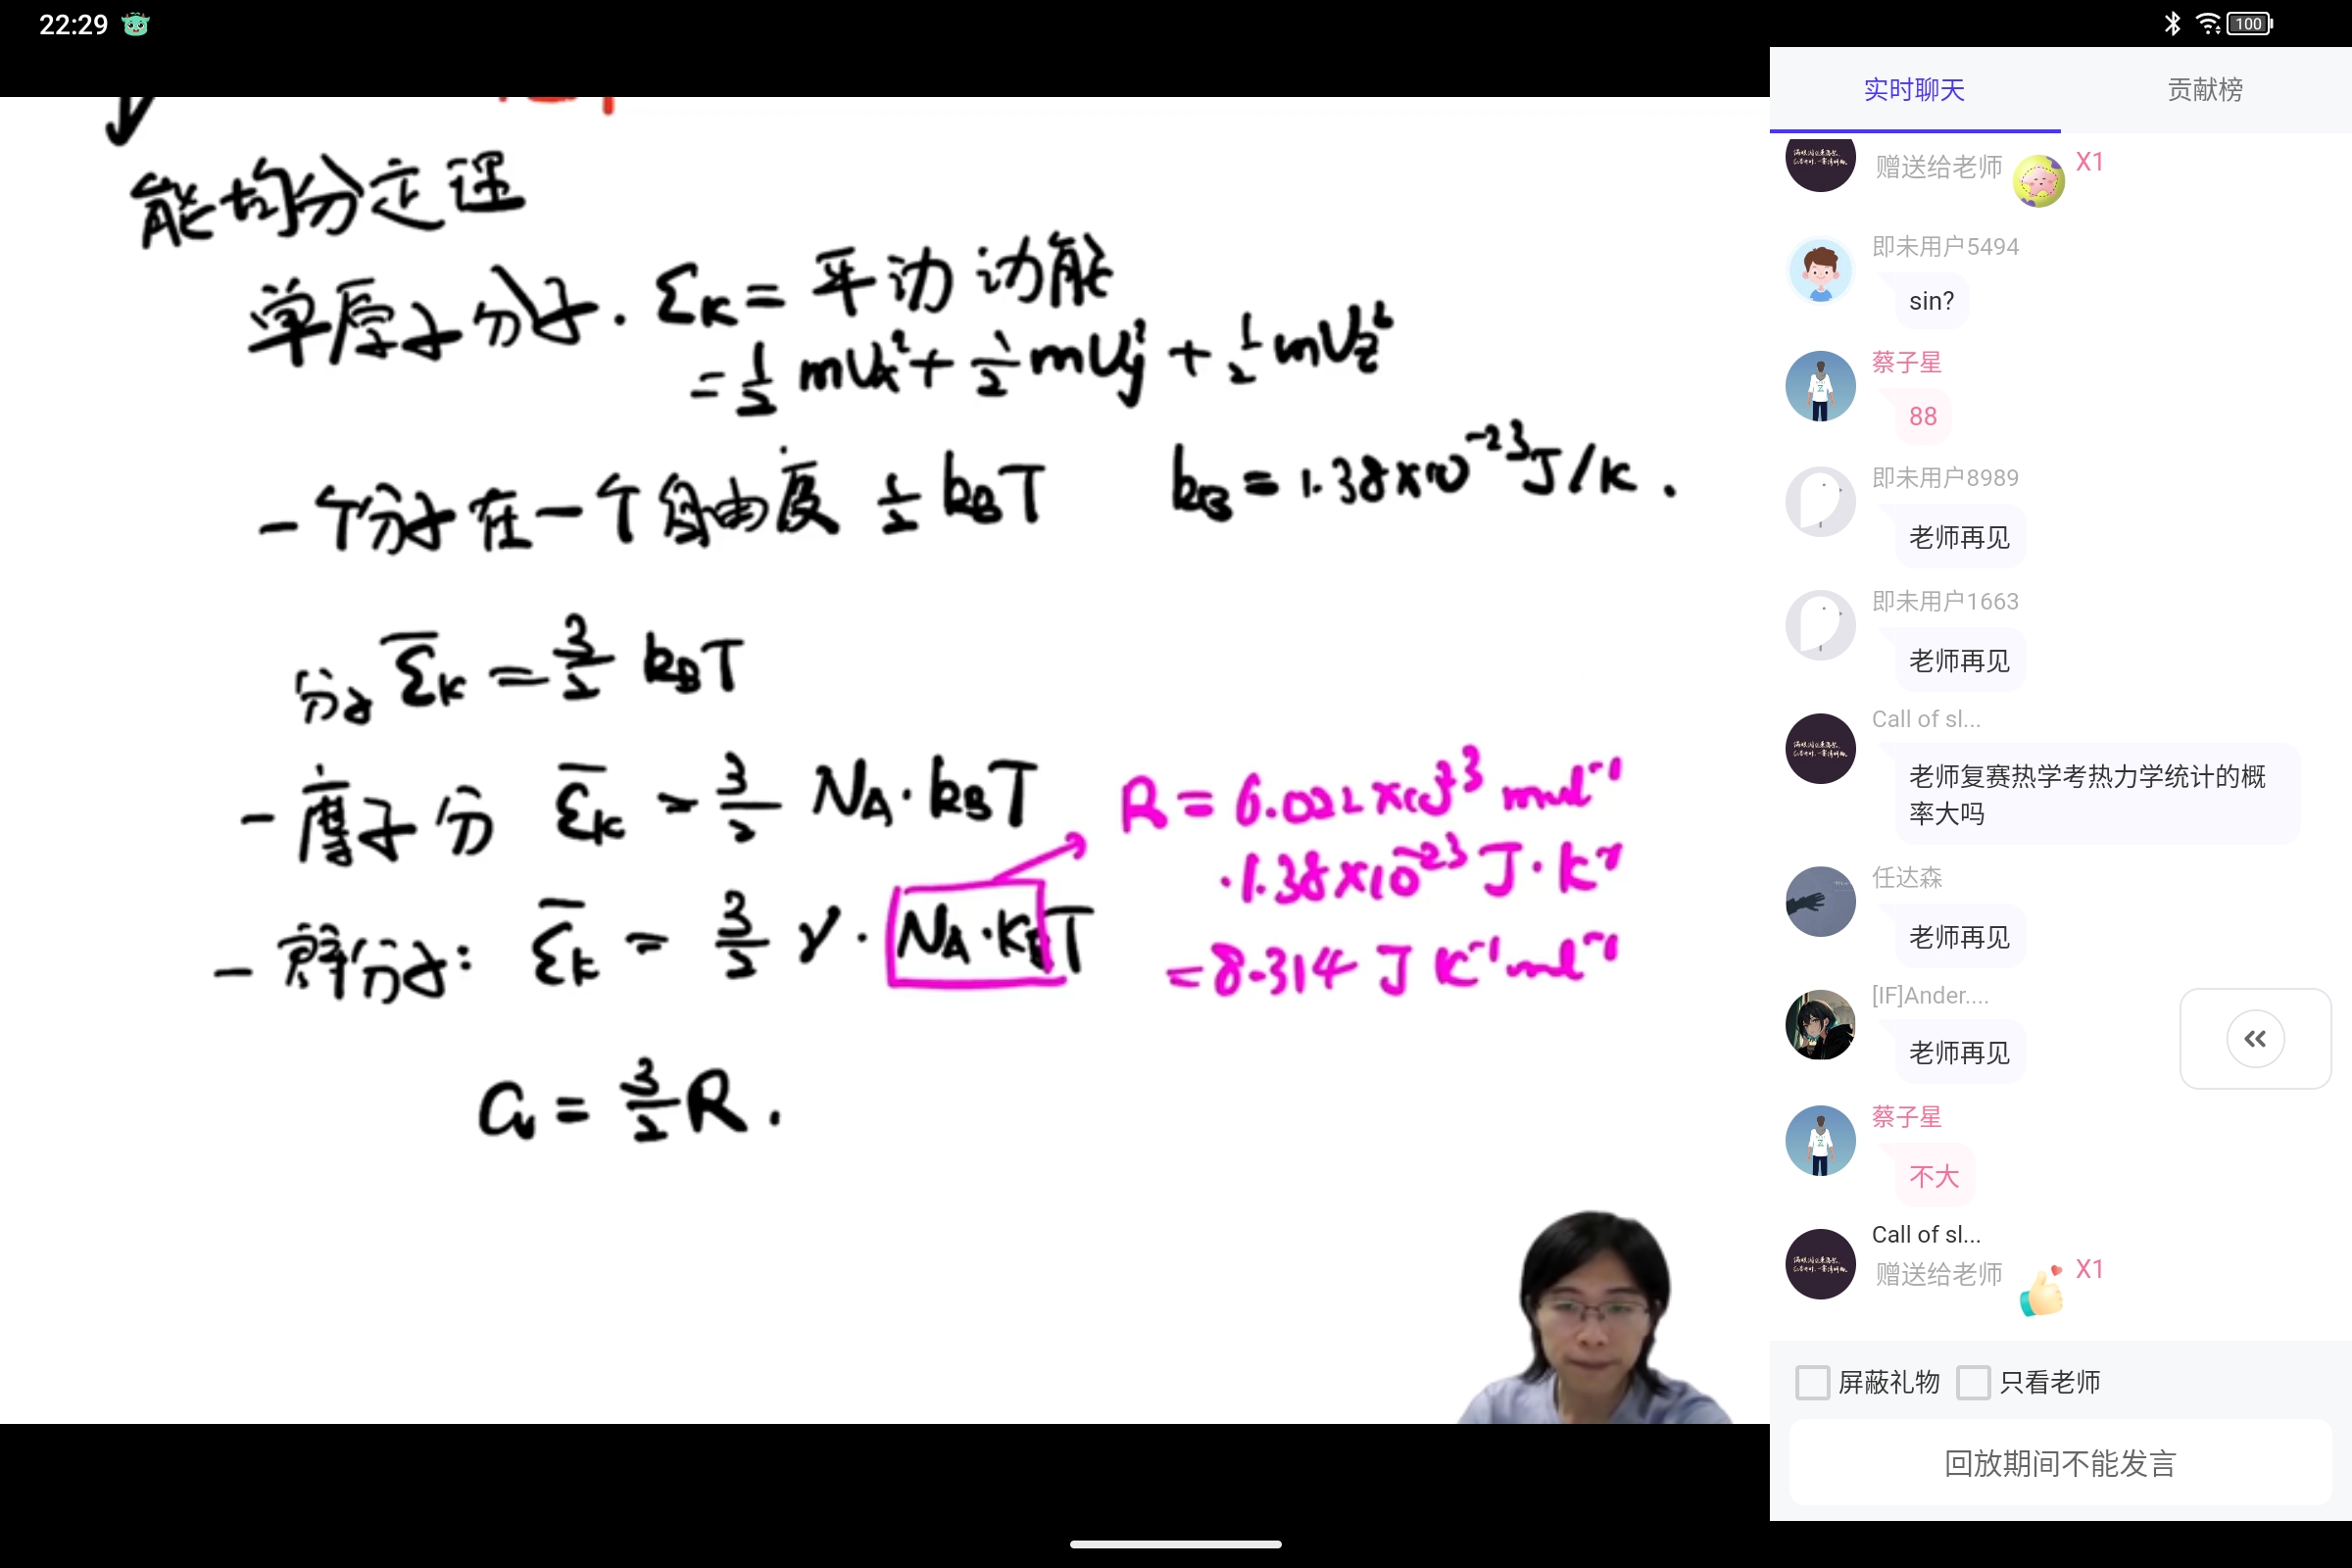 22:29
100
能均分定理
单原子分子. Σk = 平动动能
= 1/2 mUx² + 1/2 mUy² + 1/2 mUz²
一个分子在一个自由度 1/2 kBT kB = 1.38×10⁻²³J/K.
分子 Σ̅k = 3/2 kBT
一摩子分 Σ̅k = 3/2 NA·kBT
R = 6.022×10²³ mol⁻¹
·1.38×10⁻²³ J·K⁻¹
= 8.314 J K⁻¹mol⁻¹
一群分子: Σ̅k = 3/2 ν·NA·KBT
Cv = 3/2 R.
实时聊天
贡献榜
赠送给老师 X1
即未用户5494
sin?
蔡子星
88
即未用户8989
老师再见
即未用户1663
老师再见
Call of sl...
老师复赛热学考热力学统计的概
率大吗
任达森
老师再见
[IF]Ander....
老师再见
蔡子星
不大
Call of sl...
赠送给老师 X1
屏蔽礼物 只看老师
回放期间不能发言